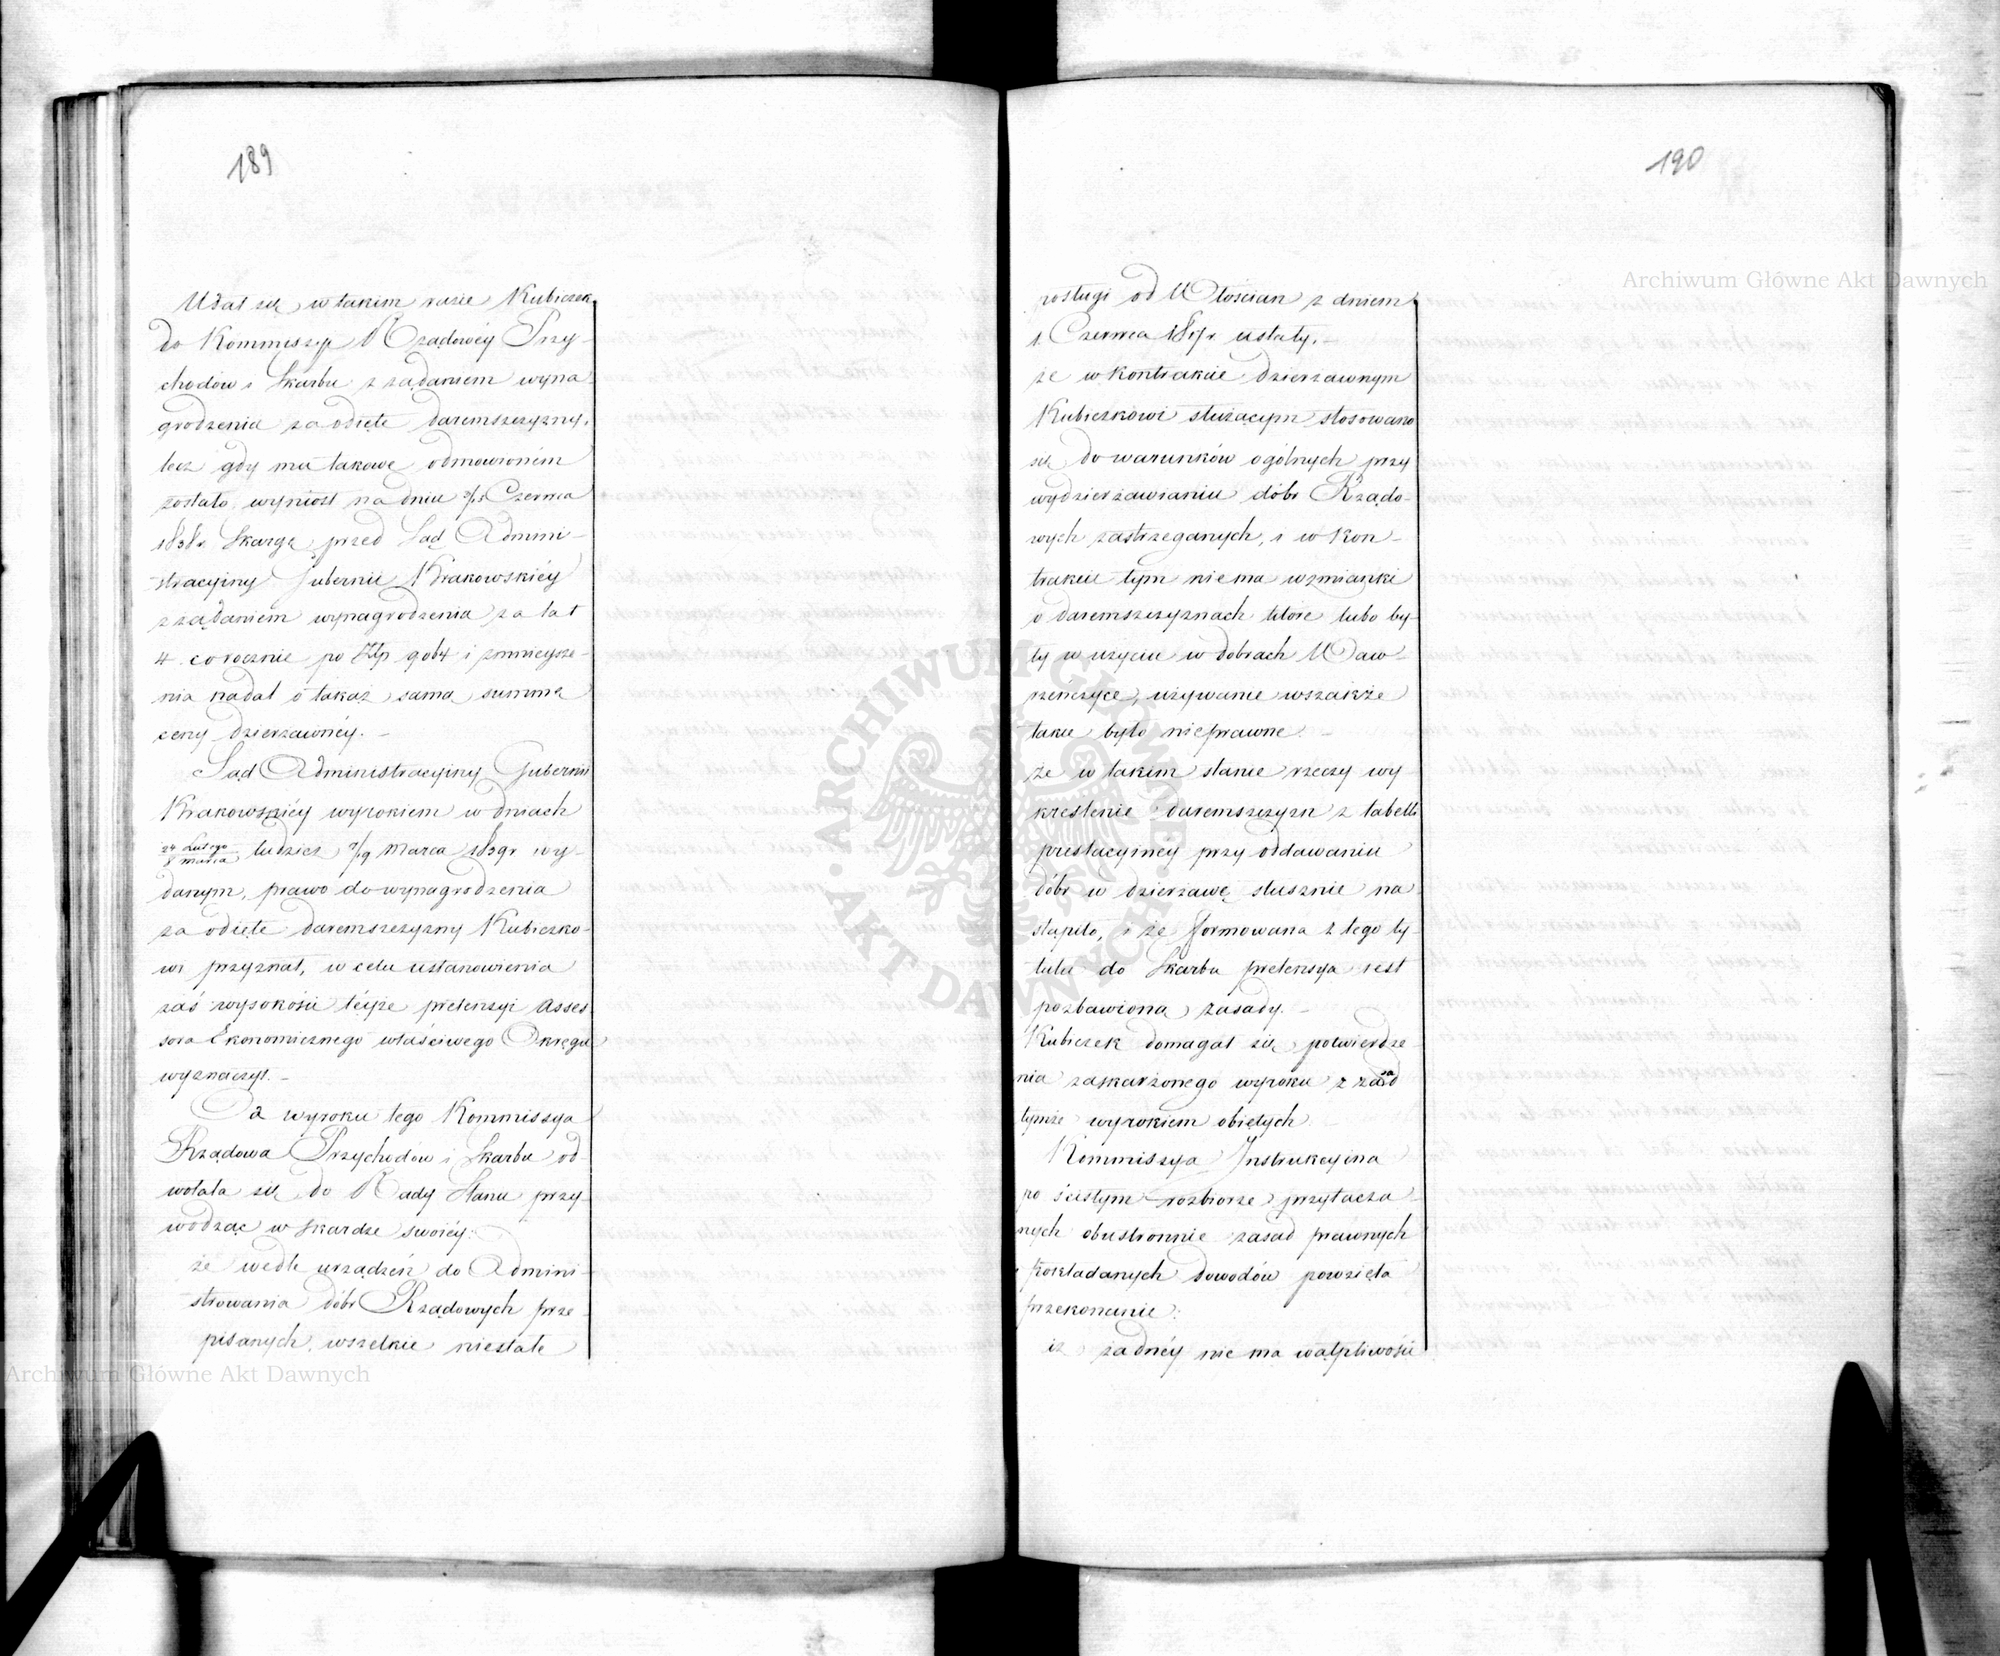 189
Udał się w takim razie Kubiczek
do Kommissyi Rządowéy Przy-
chodów i Skarbu z żądaniem wyna-
grodzenia za odięte daremszczyzny,
lecz gdy mu takowe odmowionem
zostało, wyniosł na dniu Czerwca
1838r. Skargę przed Sąd Admini-
stracyiny Gubernii Krakowskiéy
z żądaniem wynagrodzenia za lat
4 corocznie po Złp 9064 i zmnieysze-
nia nadal o takąż samą summę
ceny dzierzawnéy. –
Sąd Administracyiny Gubernii
Krakowskiéy wyrokiem w dniach
24 Lutego / 8 Marca tudzież 7/19 Marca 1839r wy-
danym, prawo do wynagrodzenia
za odięte daremszczyzny Kubiczko-
wi przyznał, w celu ustanowienia
zaś wysokości téyże pretensyi Asses-
sora Ekonomicznego właściwego Okręgu
wyznaczył. –
Od wyroku tego Kommissya
Rządowa Przychodów i Skarbu od-
wołała się do Rady Stanu przy-
wodząc w skardze swoiéy:
że wedle urządzeń do Admini-
strowania dóbr Rządowych prze-
pisanych, wszelkie niestałe
190
posługi od Włościan z dniem
1. Czerwca ustały. –
że w kontrakcie dzierzawnym
Kubiczkowi służącym stosowano
się do warunków ogólnych przy
wydzierżawianiu dóbr Rządo-
wych zastrzeganych, i w kon-
trakcie tym niema wzmianki
o daremszczyznach które lubo by-
ły w użyciu w dobrach Waw-
rzeńczyce, używanie wszakże
takie było nieprawne. –
że w takim stanie rzeczy wy-
kreślenie daremszczyzn z tabelli
prestacyiney przy oddawaniu
dóbr w dzierzawę słusznie na-
stąpiło, i że formowana z tego ty-
tułu do Skarbu pretensya iest
pozbawioną zasady. –
Kubiczek domagał się potwierdze-
nia zaskarżonego wyroku z zasad
tymże wyrokiem obiętych.
Kommissya Instrukcyina
po ścisłym rozbiorze przytacza-
nych obustronnie zasad prawnych
i pokładanych dowodów powzięła
przekonanie:
iż żadnéy nie ma wątpliwości
Archiwum Główne Akt Dawnych
Archiwum Główne Akt Dawnych
ARCHIWUM GŁÓWNE AKT DAWNYCH